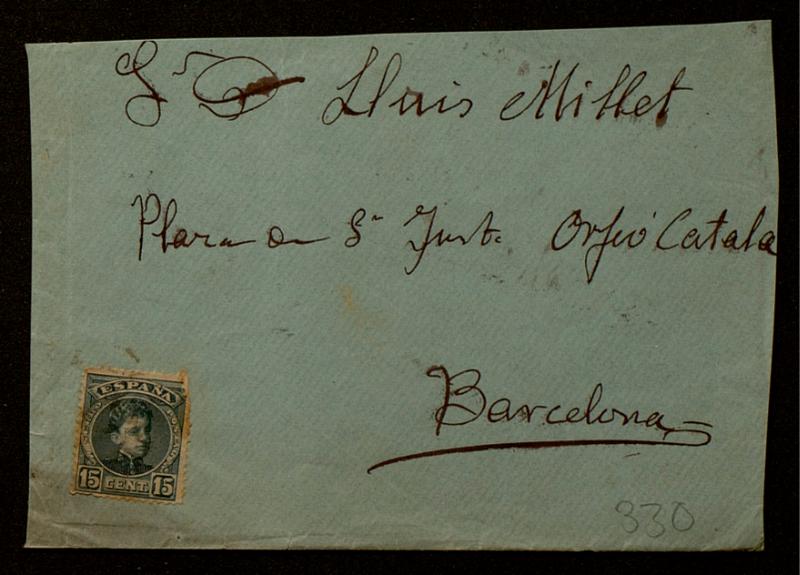 Sr D Lluis Millet
Plaza de Sn Just. Orfeó Catala
Barcelona
ESPAÑA
15 CENT. 15
330